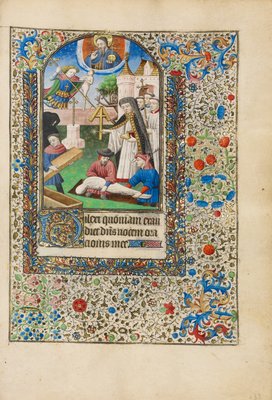 Dilexi quoniam exau
diet dñs vocem ora
cionis mee